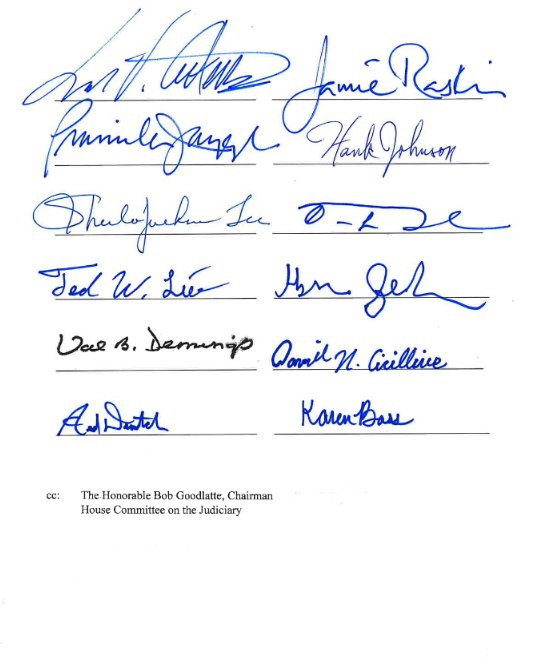 Jamie Raskin
Pramila Jayapal Hank Johnson
Sheila Jackson Lee
Ted W. Lieu
Val B. Demings David N. Cicilline
Karen Bass
cc: The Honorable Bob Goodlatte, Chairman
House Committee on the Judiciary